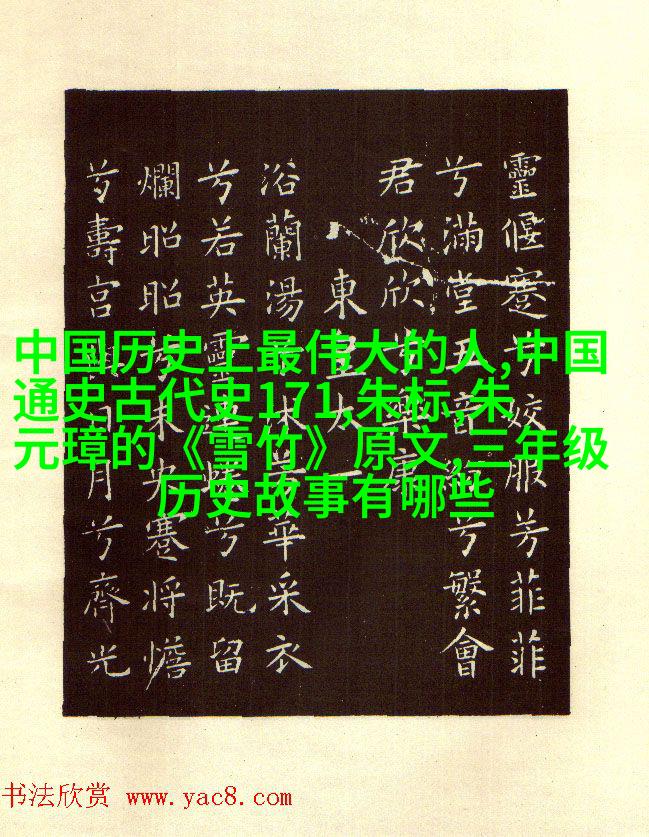 靈偃蹇兮姣服芳菲菲
兮滿堂五音紛兮繁會
君欣欣兮樂康
東皇太一
浴蘭湯兮沐芳華采衣
兮若英靈連蜷兮既留
爛昭昭兮未央蹇將憺
兮壽宮與日月兮齊光
中国历史上最伟大的人,中国
通史古代史171,朱标,朱
元璋的《雪竹》原文,三年级
历史故事有哪些
书法欣赏 www.yac8.com